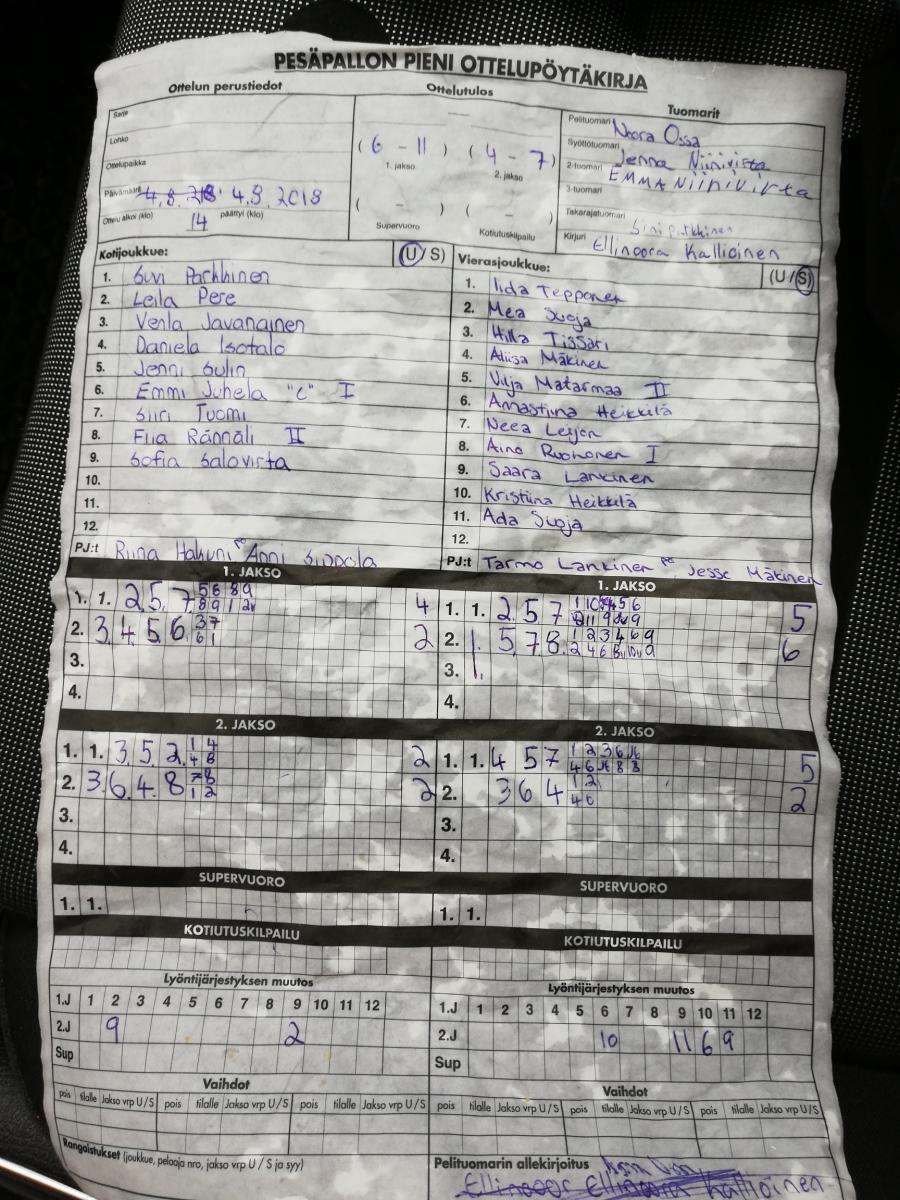 PESÄPALLON PIENI OTTELUPÖYTÄKIRJA
Ottelun perustiedot
Ottelutulos
Tuomarit
Sarja
Lohko
Ottelupaikka
Päivämäärä 4.8.2018
Ottelu alkoi (klo) 14 päättyi (klo)
( 6 - 11 ) ( 4 - 7 )
1. jakso 2. jakso
( - ) ( - )
Supervuoro Kotiutuskilpailu
Pelituomari Noora Ossa
Syöttötuomari Jenna Niinivirta
2-tuomari EMMA Niinivirta
3-tuomari
Takarajatuomari
Kirjuri Ellinoora Kallioinen
Kotijoukkue: (U/S)
1. Suvi Parkkinen
2. Leila Pere
3. Venla Javanainen
4. Daniela Isotalo
5. Jenni Sulin
6. Emmi Juhela "C" I
7. Siiri Tuomi
8. Fiia Rännäli II
9. Sofia Salovirta
10.
11.
12.
PJ:t Riina Hakuni Anni Sippola
Vierasjoukkue: (U/S)
1. Iida Tepponen
2. Mea Suoja
3. Hilla Tissari
4. Aliisa Mäkinen
5. Vilja Matarmaa II
6. Annastiina Heikkilä
7. Neea Leijon
8. Aino Ruohonen I
9. Saara Lankinen
10. Kristiina Heikkilä
11. Ada Suoja
12.
PJ:t Tarmo Lankinen Jesse Mäkinen
1. JAKSO
1. 1. 2 5 7 4
2. 3 4 5 6 2
3.
4.
1. JAKSO
1. 1. 2 5 7 5
2. 1. 5 7 8 6
3. 1.
4.
2. JAKSO
1. 1. 3 5 2 2
2. 3 6 4 8 2
3.
4.
2. JAKSO
1. 1. 4 5 7 5
2. 3 6 4 2
3.
4.
SUPERVUORO
1. 1.
SUPERVUORO
1. 1.
KOTIUTUSKILPAILU
KOTIUTUSKILPAILU
Lyöntijärjestyksen muutos
1.J 1 2 3 4 5 6 7 8 9 10 11 12
2.J 9 2
Sup
Lyöntijärjestyksen muutos
1.J 1 2 3 4 5 6 7 8 9 10 11 12
2.J 10 11 6 9
Sup
Vaihdot
pois tilalle Jakso vrp U/S pois tilalle Jakso vrp U/S pois tilalle Jakso vrp U/S
Vaihdot
pois tilalle Jakso vrp U/S pois tilalle Jakso vrp U/S pois tilalle Jakso vrp U/S
Rangaistukset (joukkue, pelaaja nro, jakso vrp U / S ja syy)
Pelituomarin allekirjoitus
Kallioinen